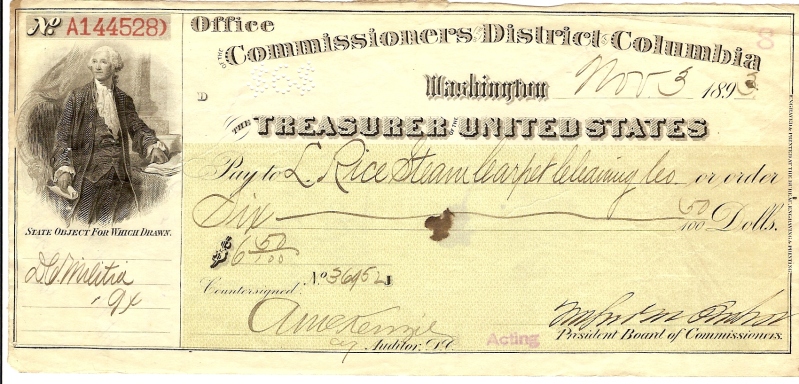 No A144528)
Office
OF THE Commissioners OF THE District OF Columbia
$6$
8
D
Washington Nov. 3 1893
THE TREASURER OF THE UNITED STATES
Pay to L. Rice Steam Carpet Cleaning Co or order
Six 50/100 Dolls.
STATE OBJECT FOR WHICH DRAWN.
$6 50/100
DC Militia
, 94
No 36952 J
Countersigned
A McKenzie
Auditor, D.C.
Acting
President Board of Commissioners.